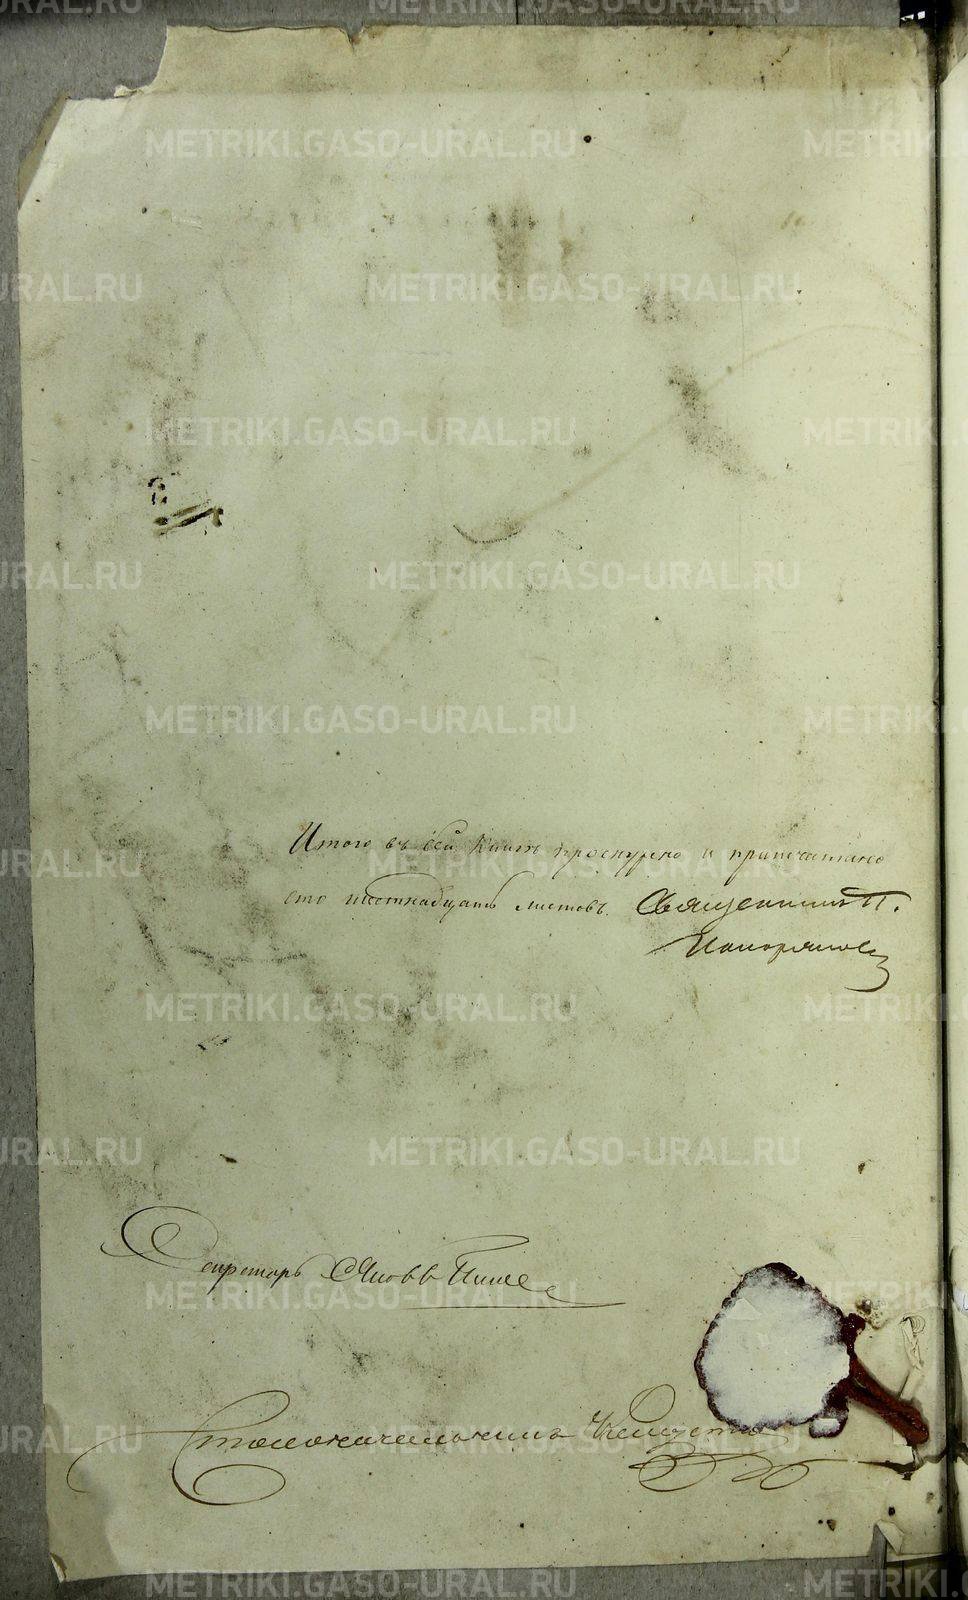 Итого въ сей Книгѣ прошнурено и припечатано
сто шестнадцать листовъ. Священникъ П.
Секретарь Яковъ
Столоначальникъ
METRIKI.GASO-URAL.RU